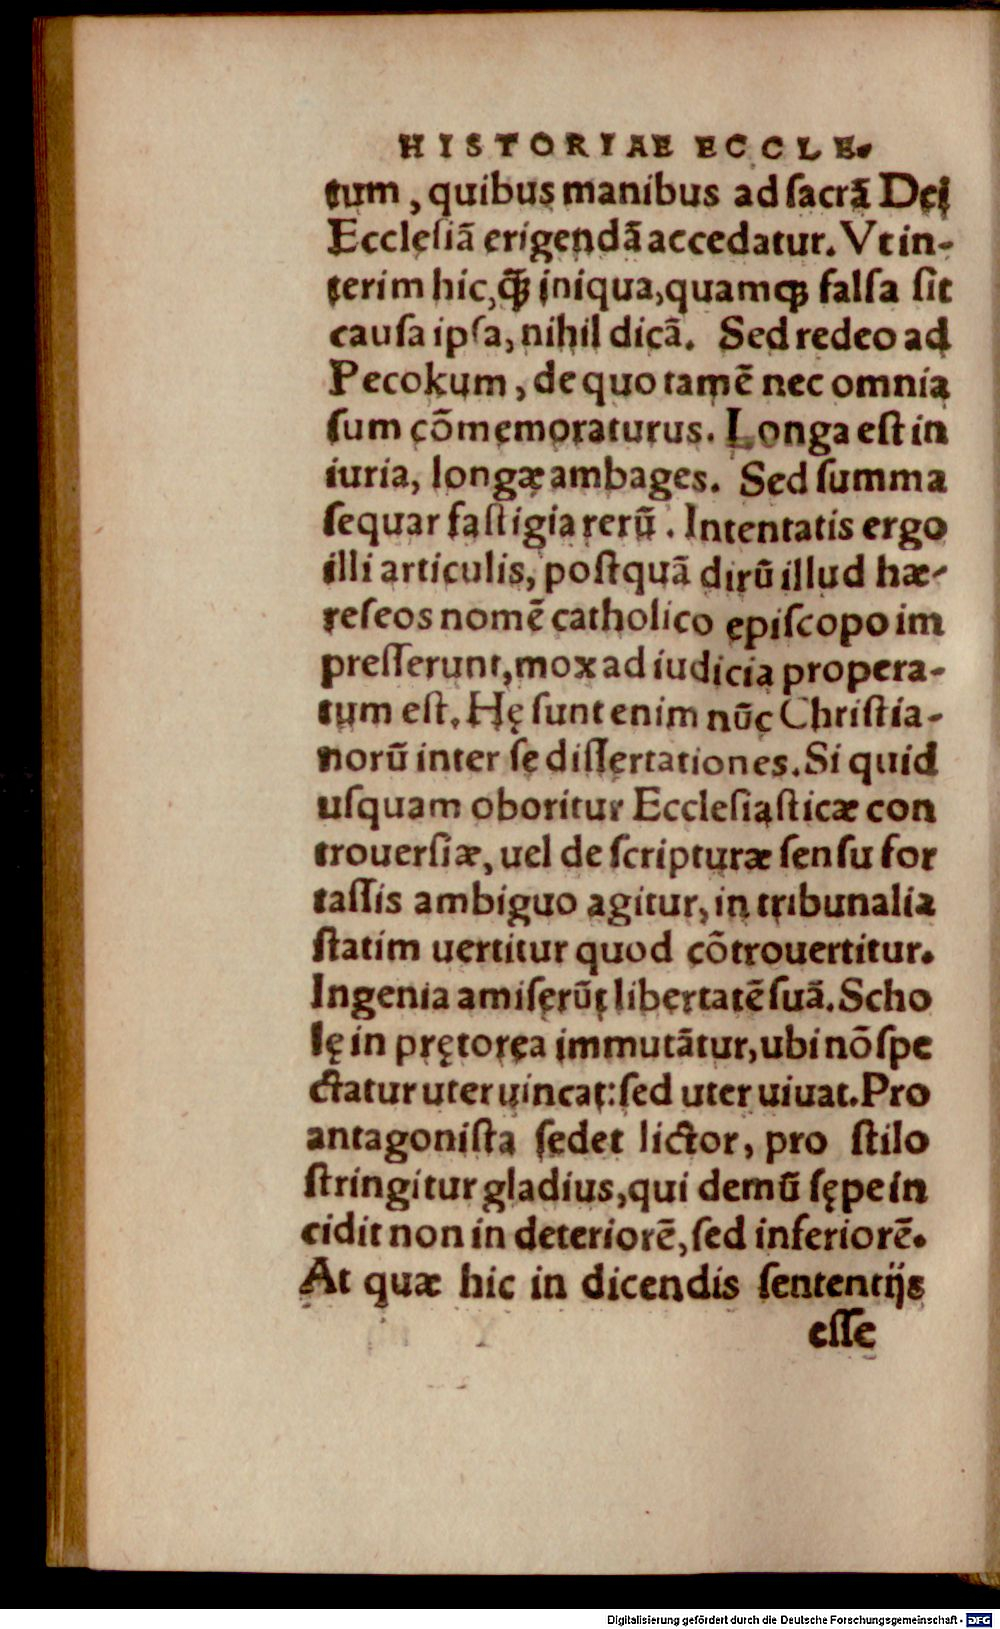 HISTORIAE ECCLE.
tum, quibus manibus ad ſacrã Dei
Eccleſiã erigendã accedatur. Vt in-
terim hic, ꝙ̃ iniqua, quamꝙ falſa ſit
cauſa ipſa, nihil dicã. Sed redeo ad
Pecokum, de quo tamẽ nec omnia
ſum cõmemoraturus. Longa eſt in
iuria, longæ ambages. Sed ſumma
ſequar faſtigia rerũ. Intentatis ergo
illi articulis, poſtquã dirũ illud hæ-
reſeos nomẽ catholico epiſcopo im
preſſerunt, mox ad iudicia propera-
tum eſt. Hę ſunt enim nũc Chriſtia-
norũ inter ſe diſſertationes. Si quid
uſquam oboritur Eccleſiaſticæ con
trouerſiæ, uel de ſcripturæ ſenſu for
taſſis ambiguo agitur, in tribunalia
ſtatim uertitur quod cõtrouertitur.
Ingenia amiſerũt libertatẽ ſuã. Scho
lę in prętorea immutãtur, ubi nõ ſpe
ctatur uter uincat: ſed uter uiuat. Pro
antagoniſta ſedet lictor, pro ſtilo
ſtringitur gladius, qui demũ ſępe in
cidit non in deteriorẽ, ſed inferiorẽ.
At quæ hic in dicendis ſententijs
eſſe
Digitalisierung gefördert durch die Deutsche Forschungsgemeinschaft - DFG